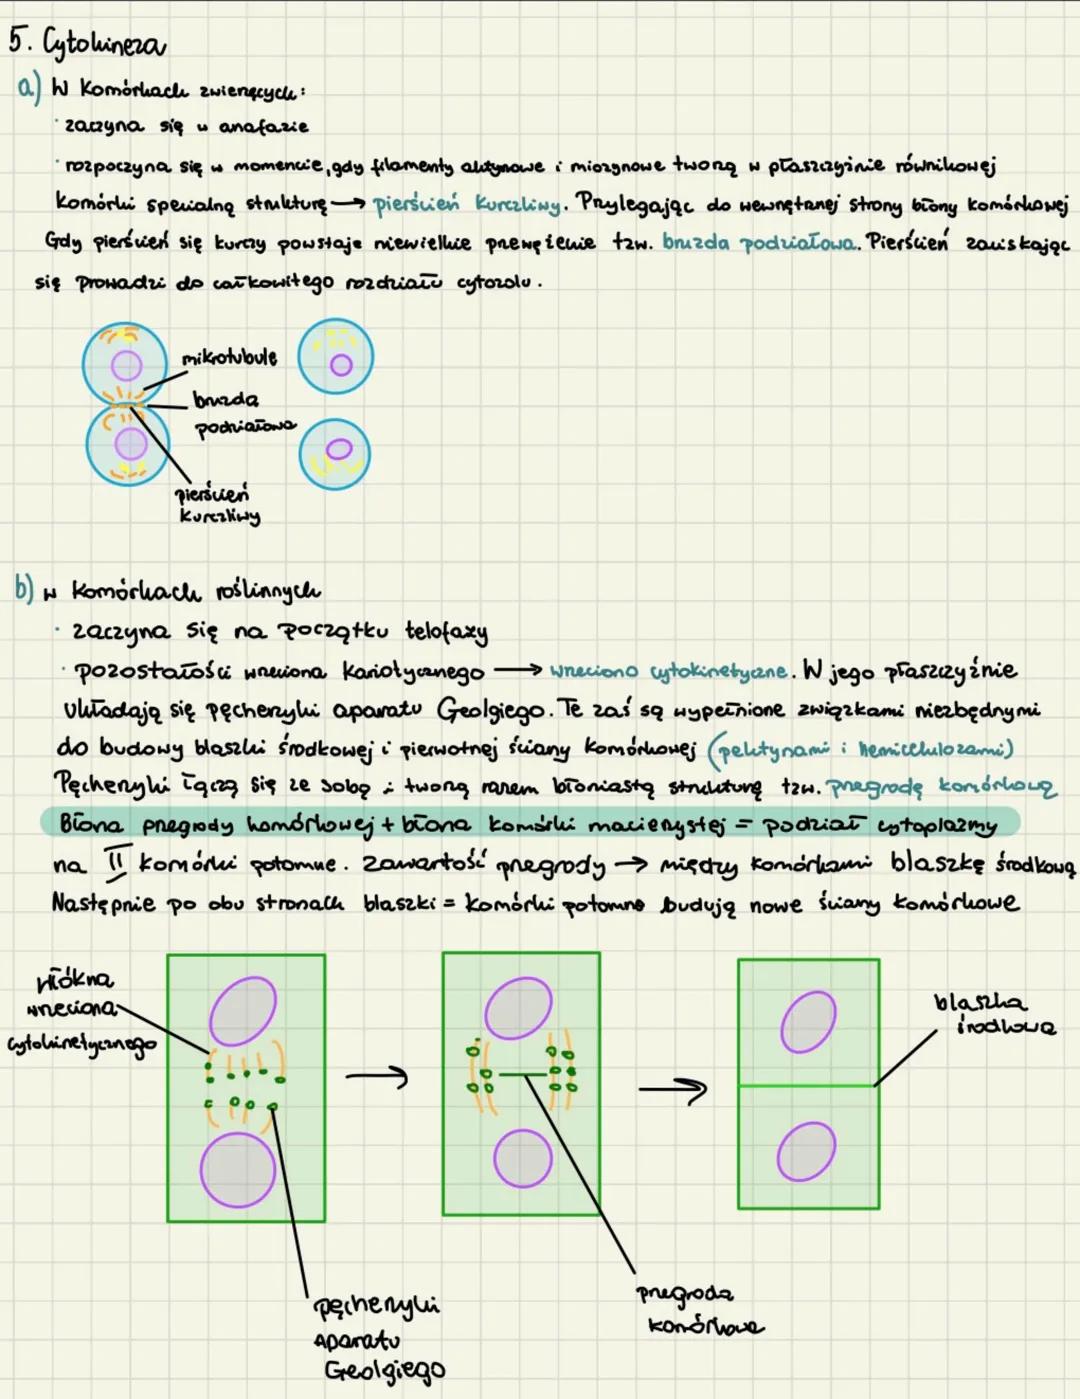 5. Cytokineza
a) W komórkach zwierzęcych:
· zaczyna się w anafazie
· rozpoczyna się w momencie, gdy filamenty aktynowe i miozynowe tworzą w płaszczyźnie równikowej
komórki specialną strukturę → pierścień kurczliwy. Przylegając do wewnętrznej strony błony komórkowej
Gdy pierścień się kurczy powstaje niewielkie przewężenie tzw. bruzda podziałowa. Pierścień zaciskając
się prowadzi do całkowitego rozdziału cytozolu.
mikrotubule
bruzda
podziałowa
pierścień
kurczliwy
b) w komórkach roślinnych
· zaczyna się na początku telofazy
· pozostałości wrzeciona kariotycznego → wrzeciono cytokinetyczne. W jego płaszczyźnie
układają się pęcherzyki aparatu Geolgiego. Te zaś są wypełnione związkami niezbędnymi
do budowy blaszki środkowej i pierwotnej ściany komórkowej (pektynami i hemicelulozami)
Pęcherzyki łączą się ze sobą i tworzą razem błoniastą strukturę tzw. przegrodę komórkową
Błona przegrody komórkowej + błona komórki macierzystej = podział cytoplazmy
na II komórki potomne. Zawartość przegrody → między komórkami blaszkę środkową
Następnie po obu stronach blaszki = komórki potomne budują nowe ściany komórkowe
włókna
wrzeciona
cytokinetycznego
blaszka
środkowa
pęcherzyki
aparatu
Geolgiego
przegroda
komórkowa